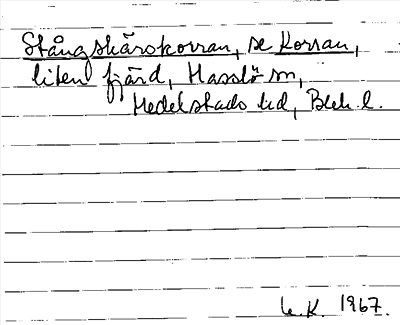 Stångskärskorran, se Korran,
liten fjärd, Hasslö sn,
Medelstads hd, Blek. l.
K. 1967.